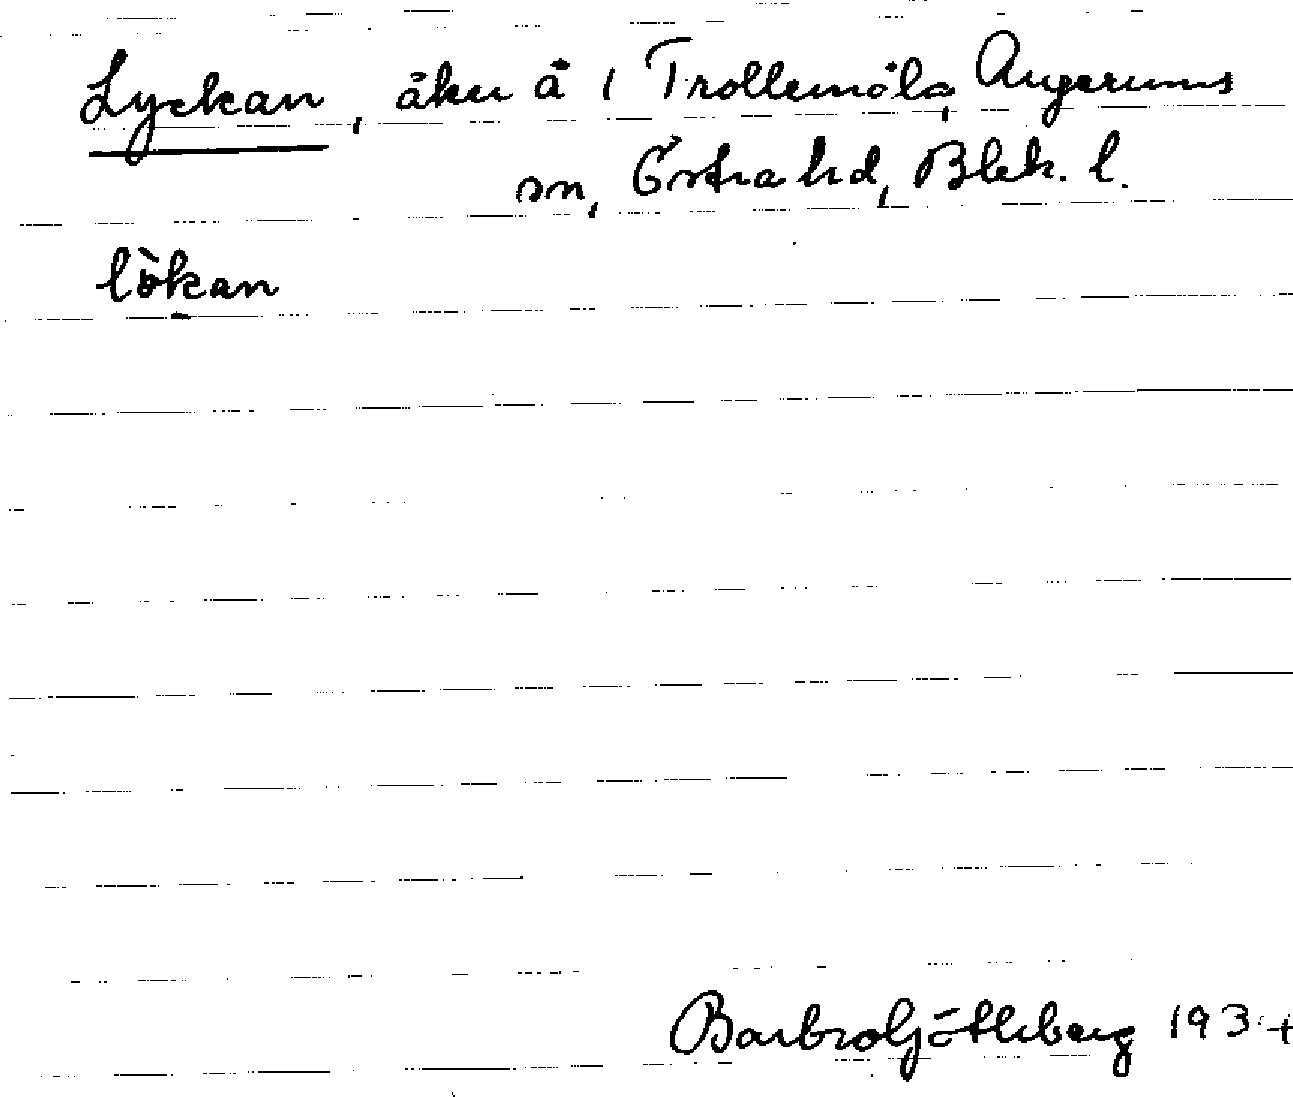 Lyckan, åker å 1 Trollemåla, Augerums
sn, Östra hd, Blek. l.
lö̀kan
Barbro Götleberg 1934